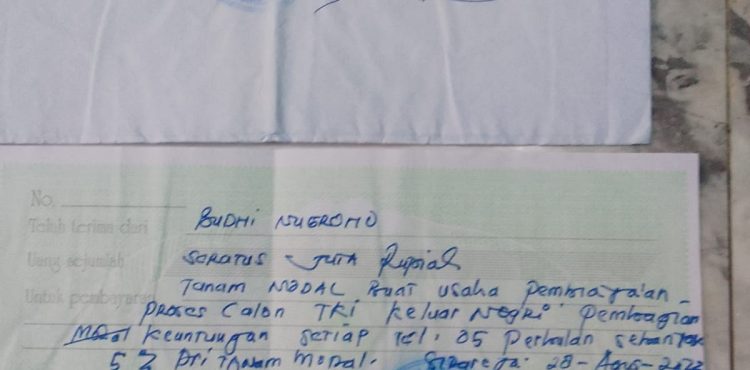 No.
Telah terima dari BUDHI NUGROHO
Uang sejumlah SERATUS JUTA Rupiah
Untuk pembayaran Tanam MODAL Buat usaha Pembiaya'an
Proses Calon TKI Keluar Negri Pembagian
Keuntungan SETIAP Tgl. 05 Perbulan
5 % Dri Tanam Modal. 28 - Agus - 2022